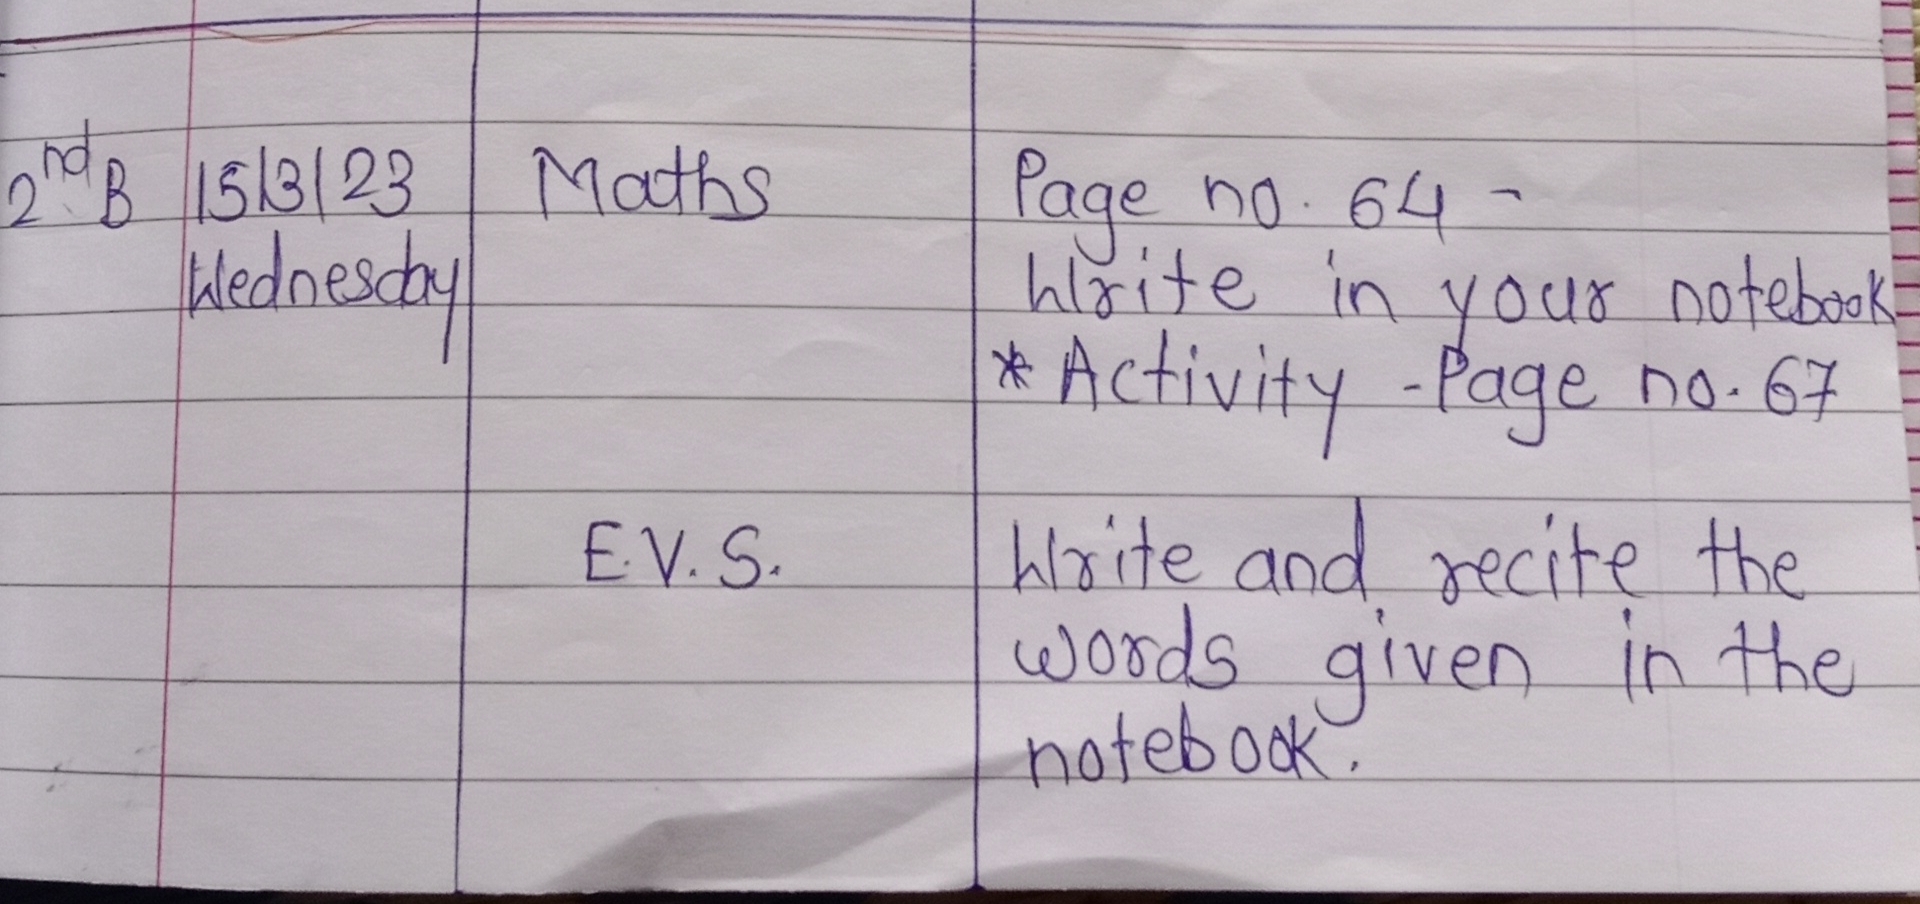 2nd B 15/3/23 Maths Page no. 64 -
Wednesday Write in your notebook
* Activity - Page no. 67
E.V.S. Write and recite the
words given in the
notebook.